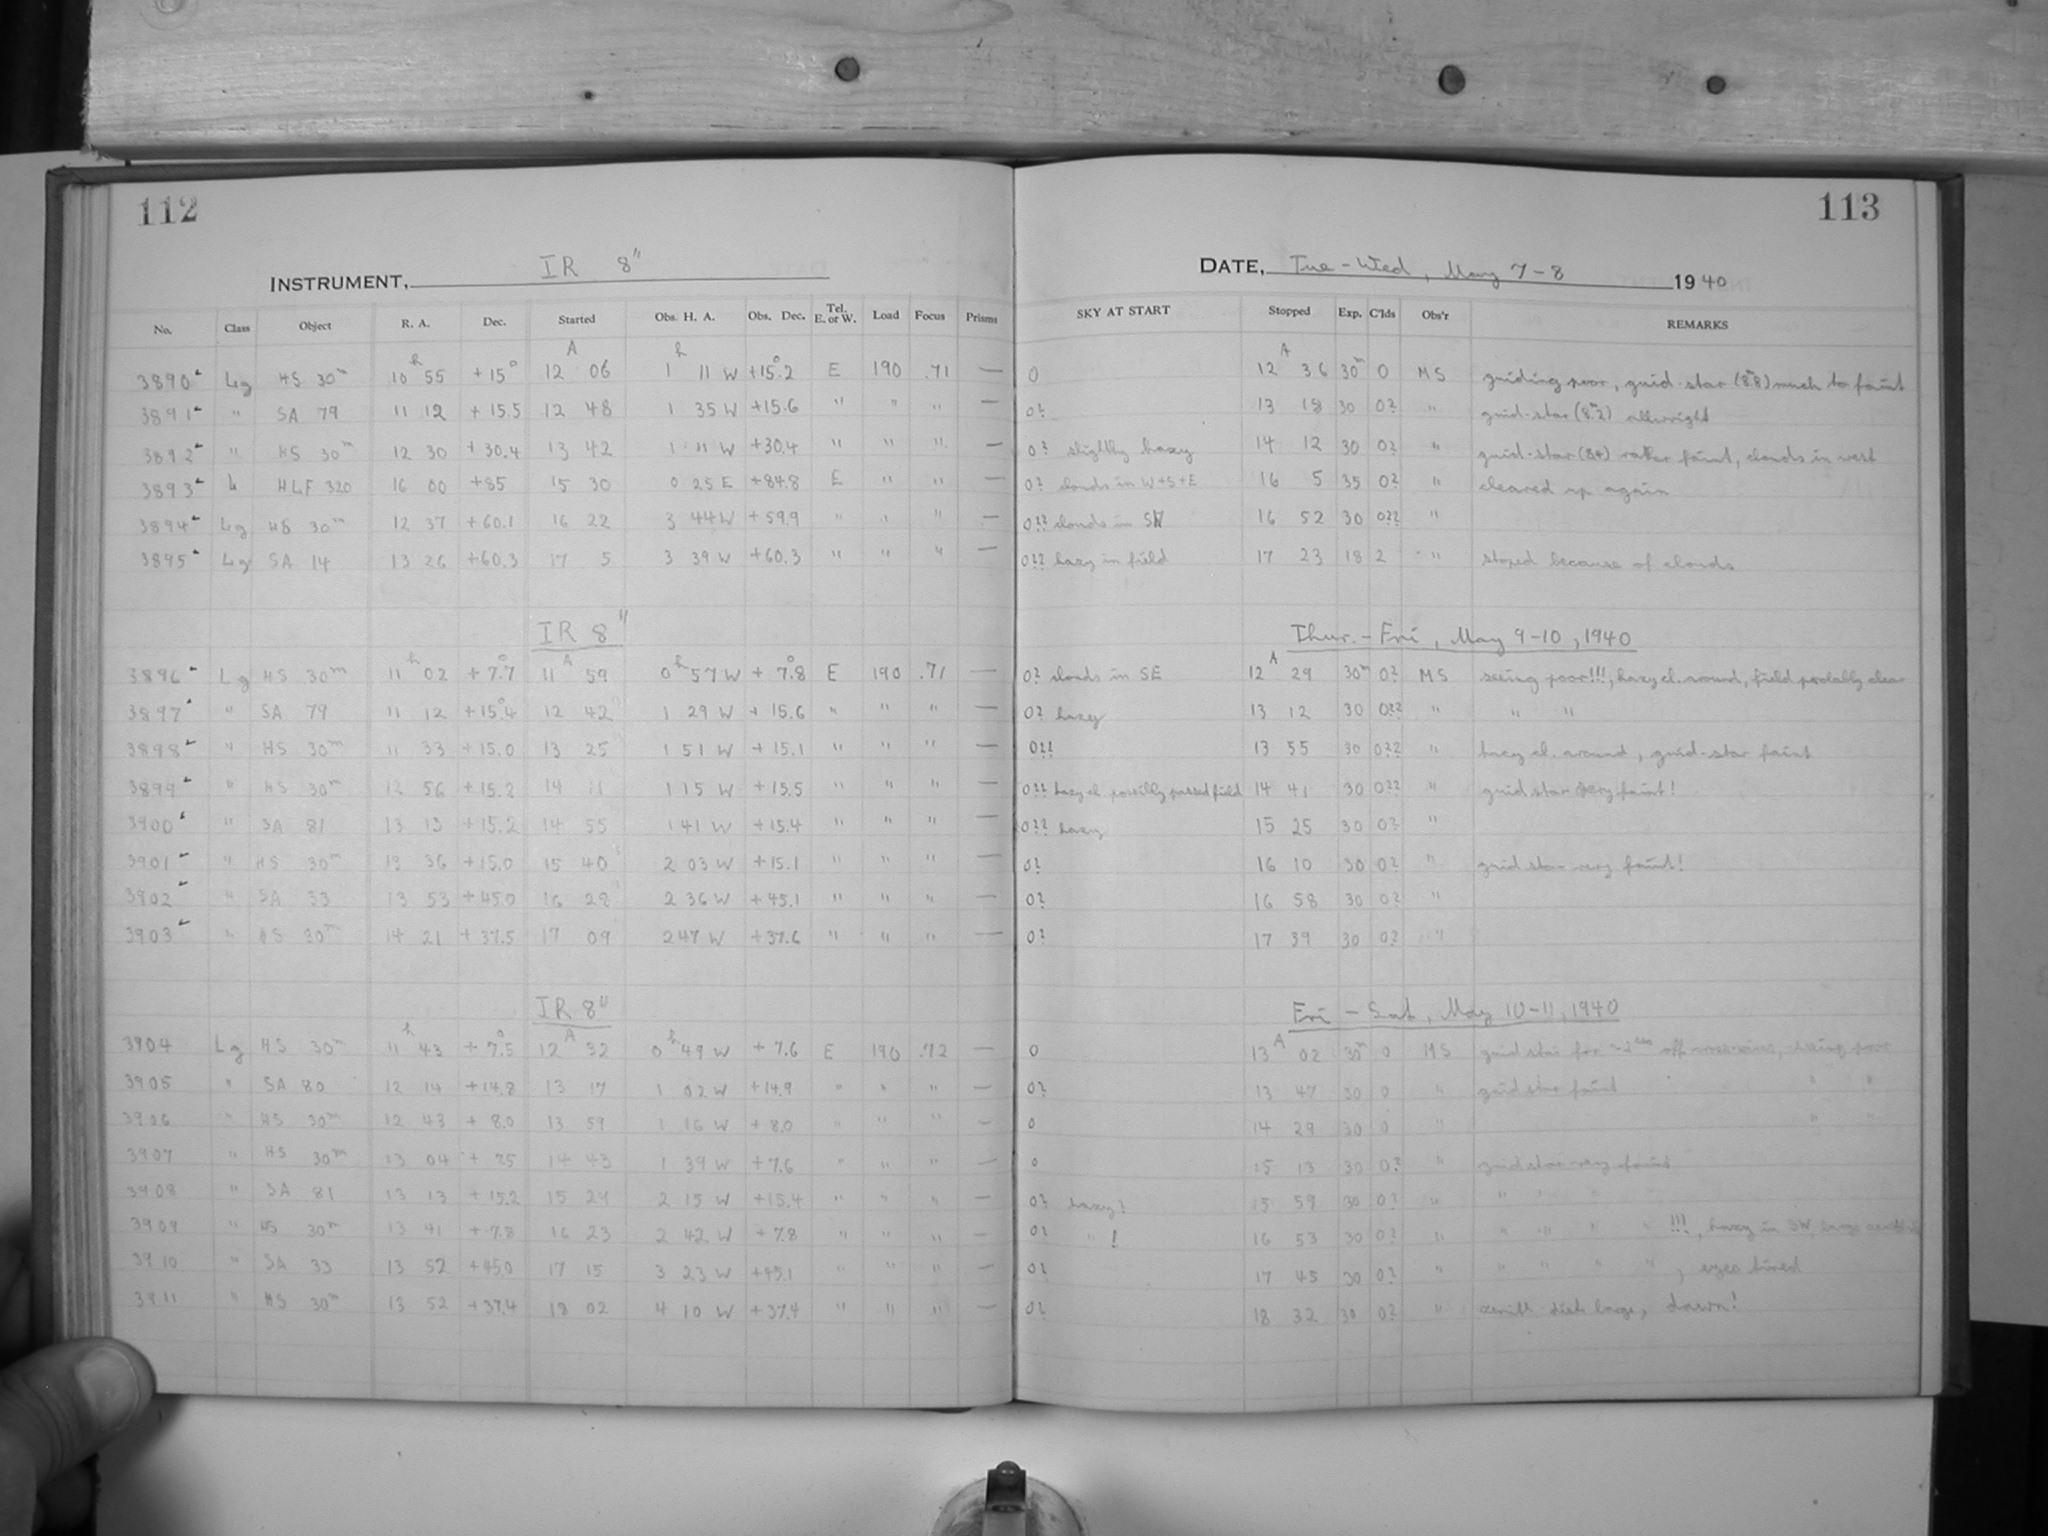 112
INSTRUMENT, IR 8"
No. Class Object R. A. Dec. Started Obs. H. A. Obs. Dec. Tel. E. or W. Load Focus Prisms
3890 Lg HS 30m 10h 55 +15° 12A 06 1h 11 W +15.°2 E 190 .71 —
3891 " SA 79 11 12 +15.5 12 48 1 35 W +15.6 " " " —
3892 " HS 30m 12 30 +30.4 13 42 1 11 W +30.4 " " " —
3893 L HLF 320 16 00 +85 15 30 0 25 E +84.8 E " " —
3894 Lg HS 30m 12 37 +60.1 16 22 3 44 W +59.9 " " " —
3895 Lg SA 14 13 26 +60.3 17 5 3 39 W +60.3 " " " —
IR 8"
3896 Lg HS 30m 11h 02 +7.°7 11A 59 0h 57 W +7.°8 E 190 .71 —
3897 " SA 79 11 12 +15.4 12 42 1 29 W +15.6 " " " —
3898 " HS 30m 11 33 +15.0 13 25 1 51 W +15.1 " " " —
3899 " HS 30m 12 56 +15.2 14 11 1 15 W +15.5 " " " —
3900 " SA 81 13 13 +15.2 14 55 1 41 W +15.4 " " " —
3901 " HS 30m 13 36 +15.0 15 40 2 03 W +15.1 " " " —
3902 " SA 33 13 53 +45.0 16 28 2 36 W +45.1 " " " —
3903 " HS 30m 14 21 +37.5 17 09 2 47 W +37.6 " " " —
IR 8"
3904 Lg HS 30m 11h 43 +7.°5 12A 32 0h 49 W +7.6 E 190 .72 —
3905 " SA 80 12 14 +14.8 13 17 1 02 W +14.9 " " " —
3906 " HS 30m 12 43 +8.0 13 59 1 16 W +8.0 " " " —
3907 " HS 30m 13 04 +7.5 14 43 1 39 W +7.6 " " " —
3908 " SA 81 13 13 +15.2 15 29 2 15 W +15.4 " " " —
3909 " HS 30m 13 41 +7.8 16 23 2 42 W +7.8 " " " —
3910 " SA 33 13 52 +45.0 17 15 3 23 W +45.1 " " " —
3911 " HS 30m 13 52 +37.4 18 02 4 10 W +37.4 " " " —
113
DATE, Tue - Wed, May 7-8 1940
SKY AT START Stopped Exp. C'lds Obs'r REMARKS
0 12A 36 30m 0 MS guiding poor, guid-star (8.m8) much to faint
0? 13 18 30 0? " guid-star (8.m2) allwright
0? slightly hazy 14 12 30 0? " guid-star (8.4) rather faint, clouds in west
0? clouds in W+S+E 16 5 35 0? " cleared up again
0?? clouds in SW 16 52 30 0?? "
0?? hazy in field 17 23 18 2 " stoped because of clouds
Thur. - Fri, May 9-10, 1940
0? clouds in SE 12A 29 30m 0? MS seeing poor!!!, hazy cl. around, field probably clear
0? hazy 13 12 30 0?? " " "
0?! 13 55 30 0?? " hazy cl. around, guid-star faint
0?? hazy cl. possibly passed field 14 41 30 0?? " guid star very faint!
0?? hazy 15 25 30 0? "
0? 16 10 30 0? " guid star very faint!
0? 16 58 30 0? "
0? 17 39 30 0? "
Fri - Sat, May 10-11, 1940
0 13A 02 30m 0 MS guid star for off cross-wires, seeing poor
0? 13 47 30 0 " guid star faint " "
0 14 29 30 0 " " "
0 15 13 30 0? " guid star very faint
0? hazy? 15 59 30 0? " " "
0? " ! 16 53 30 0? " " " " " !!!, hazy in SW, large
0? 17 45 30 0? " " " " ", eyes tired
0? 18 32 30 0? " disk large, dawn!